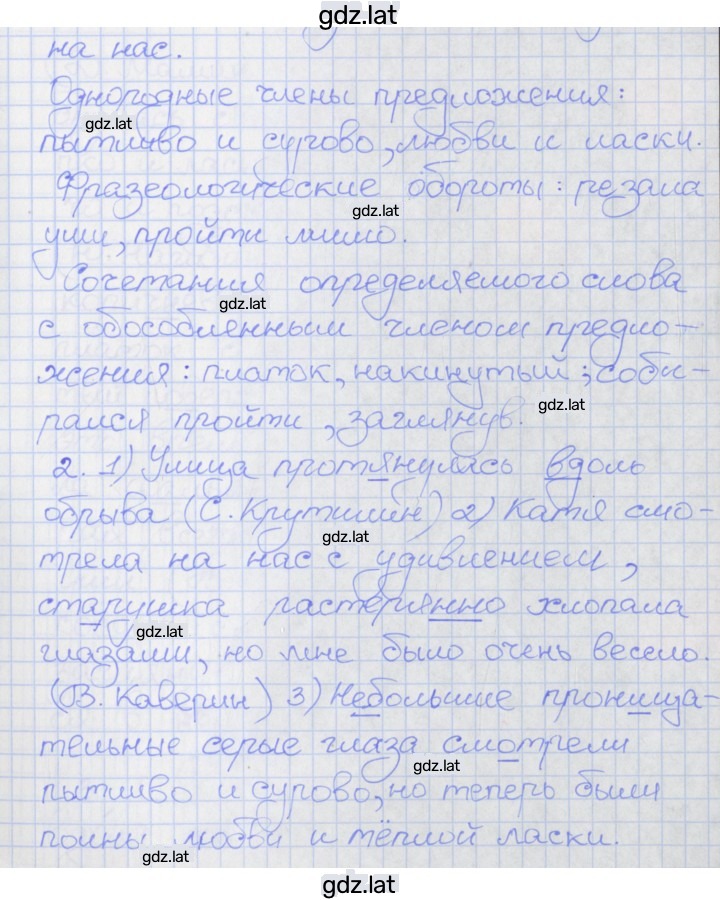 gdz.lat
на нас.
Однородные члены предложения:
gdz.lat
пытливо и сурово, любви и ласки.
Фразеологические обороты: резала
gdz.lat
уши, пройти мимо.
Сочетания определяемого слова
gdz.lat
с обособленным членом предло-
жения: платок, накинутый; соби-
gdz.lat
рался пройти, заглянув.
2. 1) Улица протянулась вдоль
обрыва (С. Крутилин) 2) Катя смо-
gdz.lat
трела на нас с удивлением,
старушка растерянно хлопала
gdz.lat
глазами, но мне было очень весело.
(В. Каверин) 3) Небольшие проница-
тельные серые глаза смотрели
gdz.lat
пытливо и сурово, но теперь были
полны любви и тёплой ласки.
gdz.lat
gdz.lat